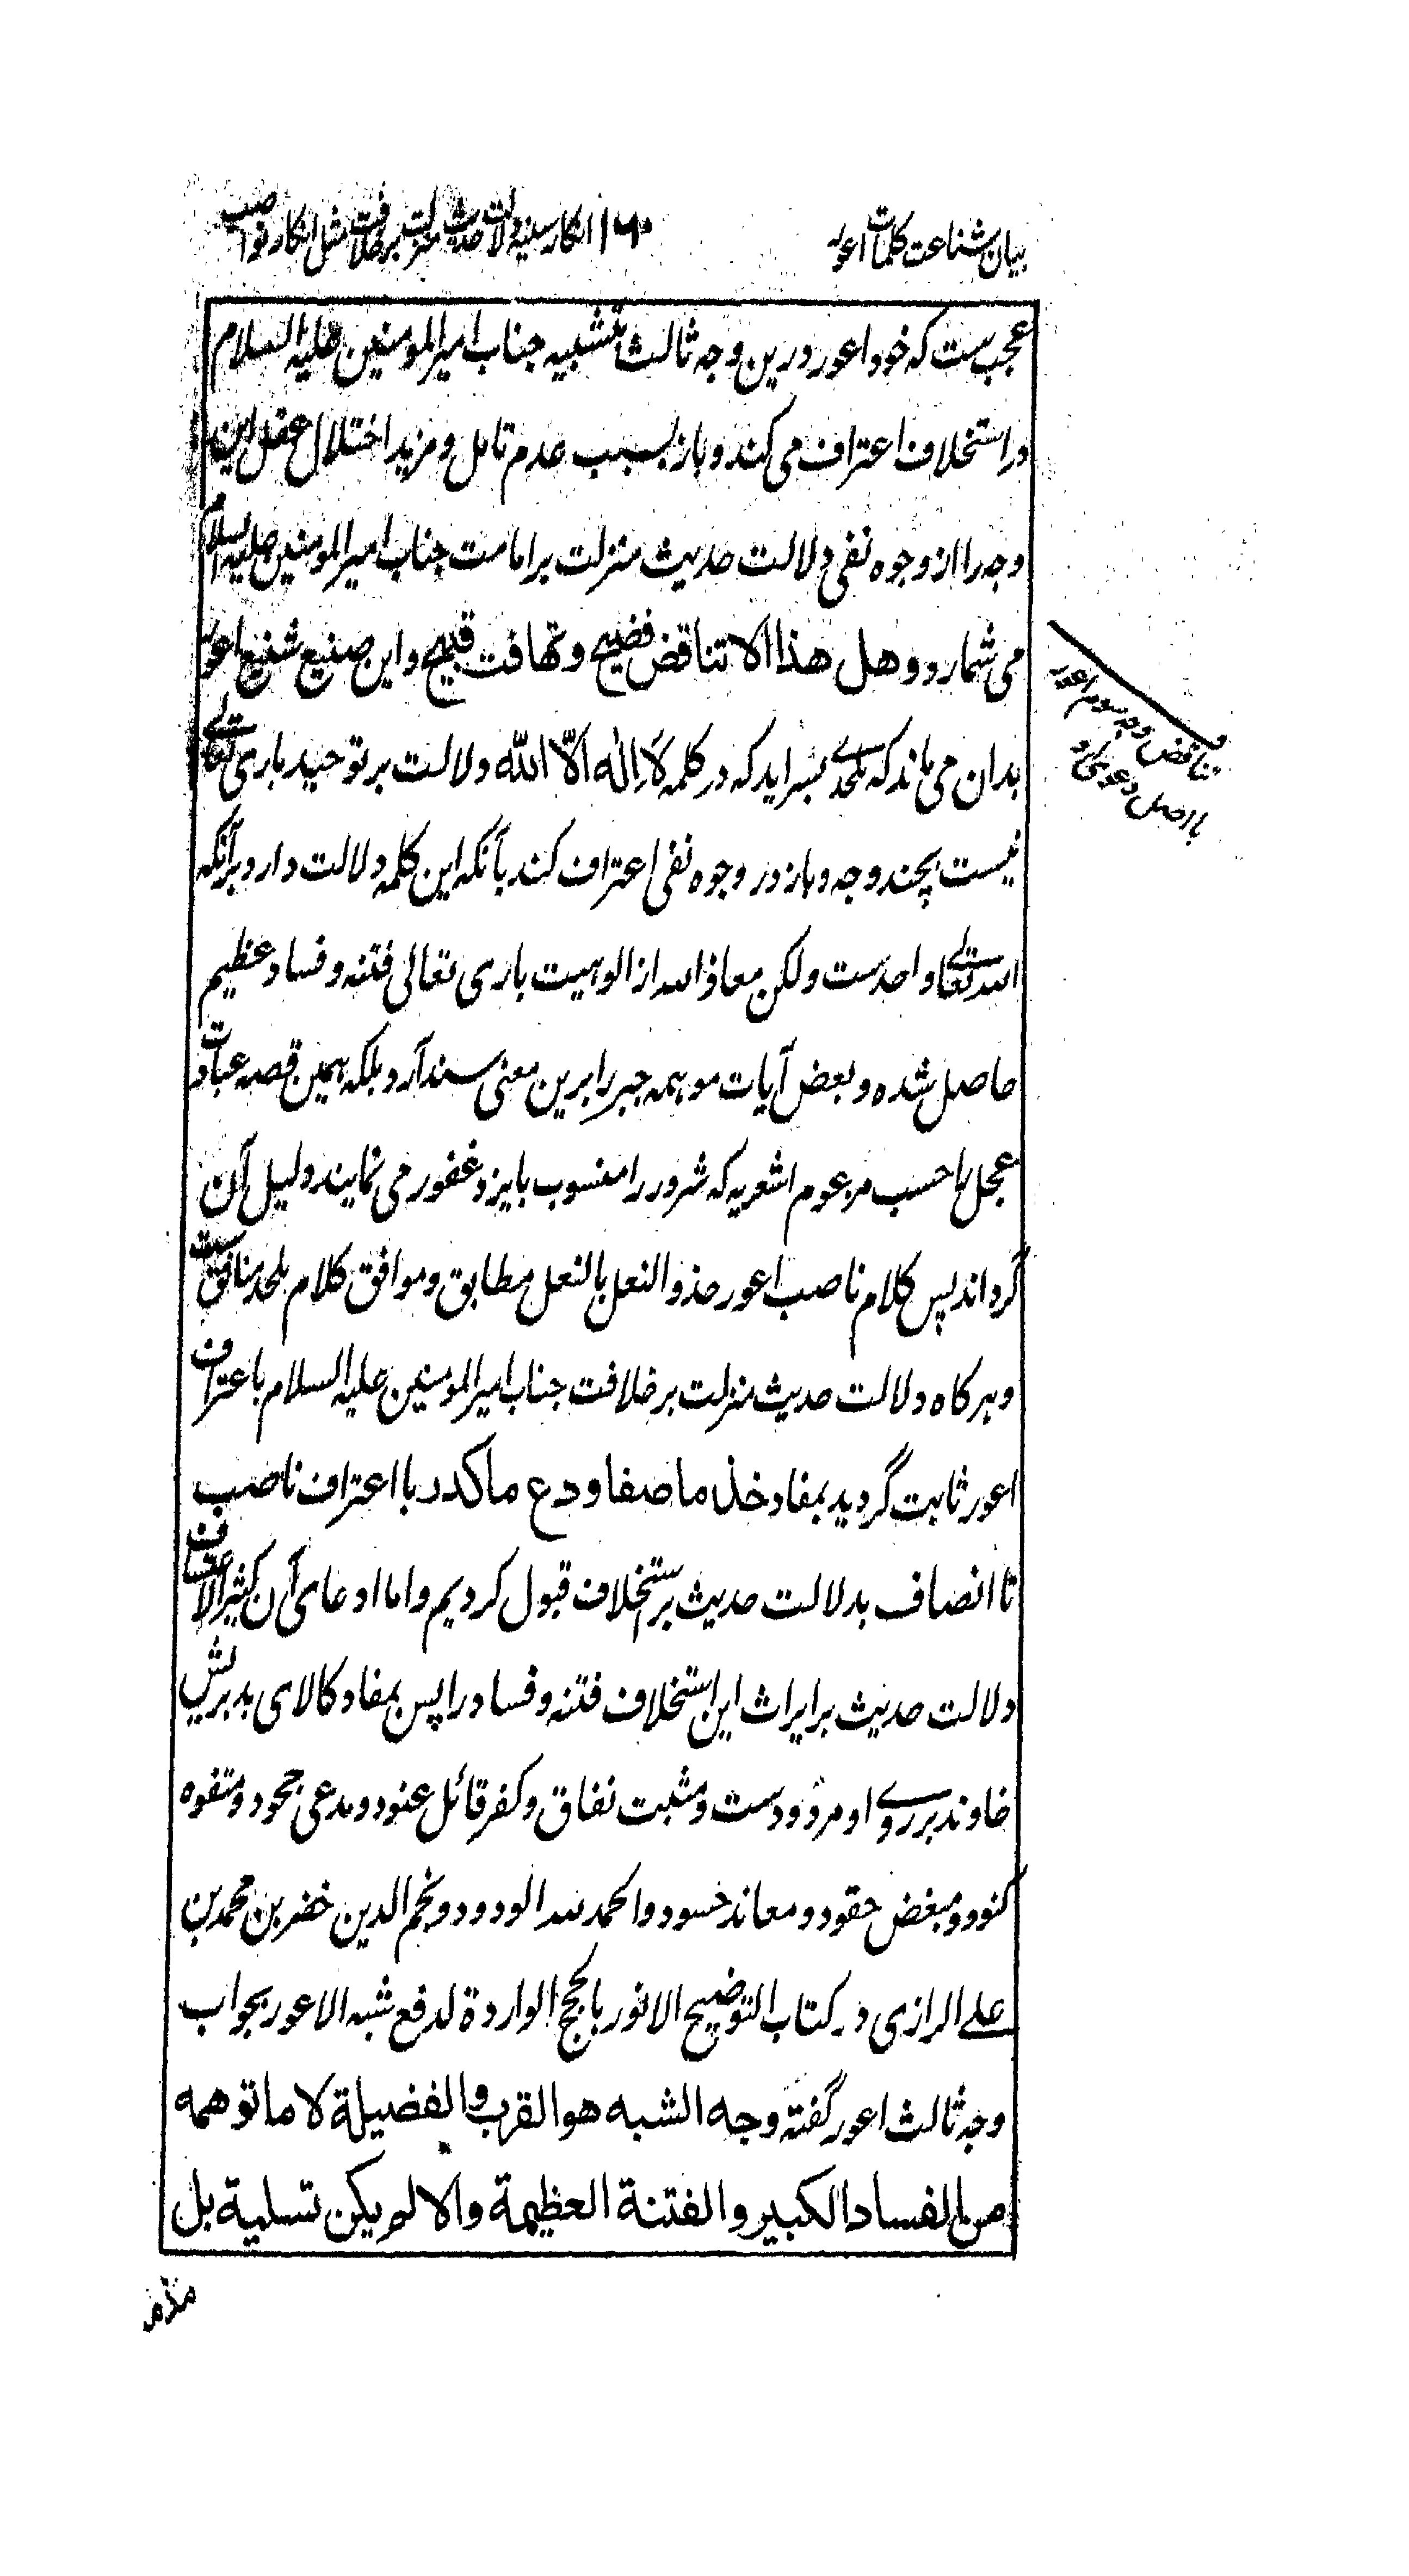 بیان شناعت کلمات اعور
۱۶۰
انکار سنیه دلالت حدیث منزلت بر خلافت مثل انکار نواصب
عجب ست که خود اعور درین وجه ثالث بتشبیه جناب امیر المومنین علیه السلام
در استخلاف اعتراف می کند و باز بسبب عدم تامل و مزید اختلال عقل این
وجه را از وجوه نفی دلالت حدیث منزلت بر امامت جناب امیر المومنین علیه السلام
می شمارد و هل هذا الا تناقض فضیح و تهافت قبیح و این صنیع شنیع اعور
بدان می ماند که ملحدی بسراید که در کلمه لا اله الا الله دلالت بر توحید باری تعالی
نیست بچند وجه و باز در وجوه نفی اعتراف کند بآنکه این کلمه دلالت دارد برآنکه
الله تعالی واحدست ولکن معاذ الله از الوهیت باری تعالی فتنه و فساد عظیم
حاصل شده و بعض آیات موهمه جبر را برین معنی سند آرد بلکه همین قصه عبادت
عجل را حسب مزعوم اشعریه که شرور را منسوب بایزد غفور می نمایند دلیل آن
گرداند پس کلام ناصب اعور حذو النعل بالنعل مطابق و موافق کلام ملحد منافق ست
و هرگاه دلالت حدیث منزلت بر خلافت جناب امیر المومنین علیه السلام باعتراف
اعور ثابت گردید بمفاد خذ ما صفا و دع ما کدر با اعتراف ناصب
نا انصاف بدلالت حدیث بر استخلاف قبول کردیم و اما ادعای آن کثیر الاعتساف
دلالت حدیث بر ایراث این استخلاف فتنه و فساد را پس بمفاد کالای بد بریش
خاوند بر روی او مردودست و مثبت نفاق و کفر قائل عنود و مدعی جحود و متفوه
کنود و مبغض حقود و معاند حسود و الحمد لله الودود و نجم الدین خضر بن محمد بن
علی الرازی در کتاب التوضیح الانور بالحجج الواردة لدفع شبه الاعور بجواب
وجه ثالث اعور گفته وجه الشبه هو القرب والفضیلة لا ما توهمه
من الفساد الکبیر والفتنة العظیمة والا لم یکن تسلیة بل
تناقض وجه سوم اعور
با اصل دعوی او